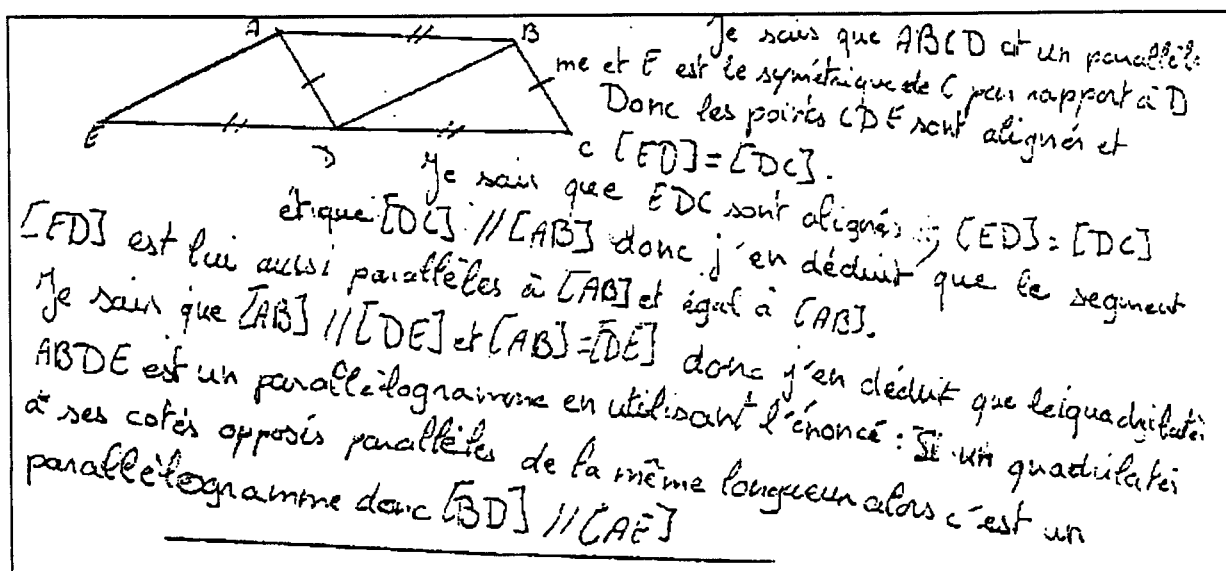 A B
E D C
Je sais que ABCD est un parallèlo
me et E est le symétrique de C par rapport à D
Donc les points CDE sont alignés et
[ED] = [DC].
Je sais que EDC sont alignés ; [ED] = [DC]
et que [DC] // [AB] donc j'en déduit que le segment
[ED] est lui aussi parallèles à [AB] et égal à [AB].
Je sais que [AB] // [DE] et [AB] = [DE] donc j'en déduit que le quadrilatè
ABDE est un parallèlogramme en utilisant l'énoncé : Si un quadrilatè
à ses cotés opposés parallèles de la même longueur alors c'est un
parallèlogramme donc [BD] // [AE]